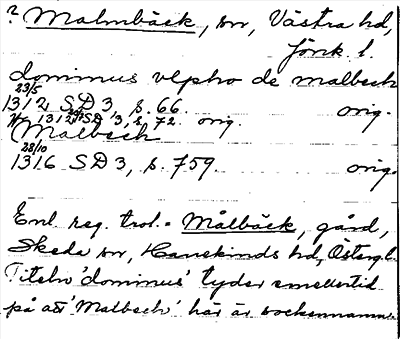 ? Malmbäck, sn, Västra hd,
Jönk l.
dominus vlpho de malbech
23/5
1312 SD 3, s. 66. orig.
1312 SD 3, s. 72. orig.
Malbech
28/10
1316 SD 3, s. 759. orig.
Enl reg. trol. = Målbäck, gård,
Skeda sn, Hanekinds hd, Östergl.
Titeln 'dominus' tyder emellertid
på att 'Malbech' här är sockennamn